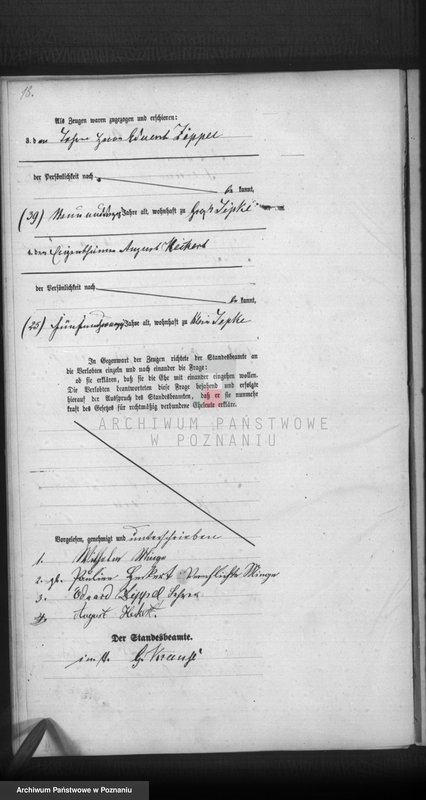 18.
Als Zeugen waren zugezogen und erschienen:
3. den Lehrer Eduard Zippel
der Persönlichkeit nach
be kannt,
(39) Jahre alt, wohnhaft zu Groß Lipke
4. den Eigenthümer August Heckert
der Persönlichkeit nach
be kannt,
(25) Jahre alt, wohnhaft zu Klein Lipke
In Gegenwart der Zeugen richtete der Standesbeamte an
die Verlobten einzeln und nach einander die Frage:
ob sie erklären, daß sie die Ehe mit einander eingehen wollen.
Die Verlobten beantworteten diese Frage bejahend und erfolgte
hierauf der Ausspruch des Standesbeamten, daß er sie nunmehr
kraft des Gesetzes für rechtmäßig verbundene Eheleute erkläre.
ARCHIWUM PAŃSTWOWE
W POZNANIU
Vorgelesen, genehmigt und unterschrieben
1. Wilhelm Minge
2. Pauline Heckert Verehelichte Minge
3. Eduard Zippel Lehrer
4. August Heckert.
Der Standesbeamte.
G. Krause
Archiwum Państwowe w Poznaniu